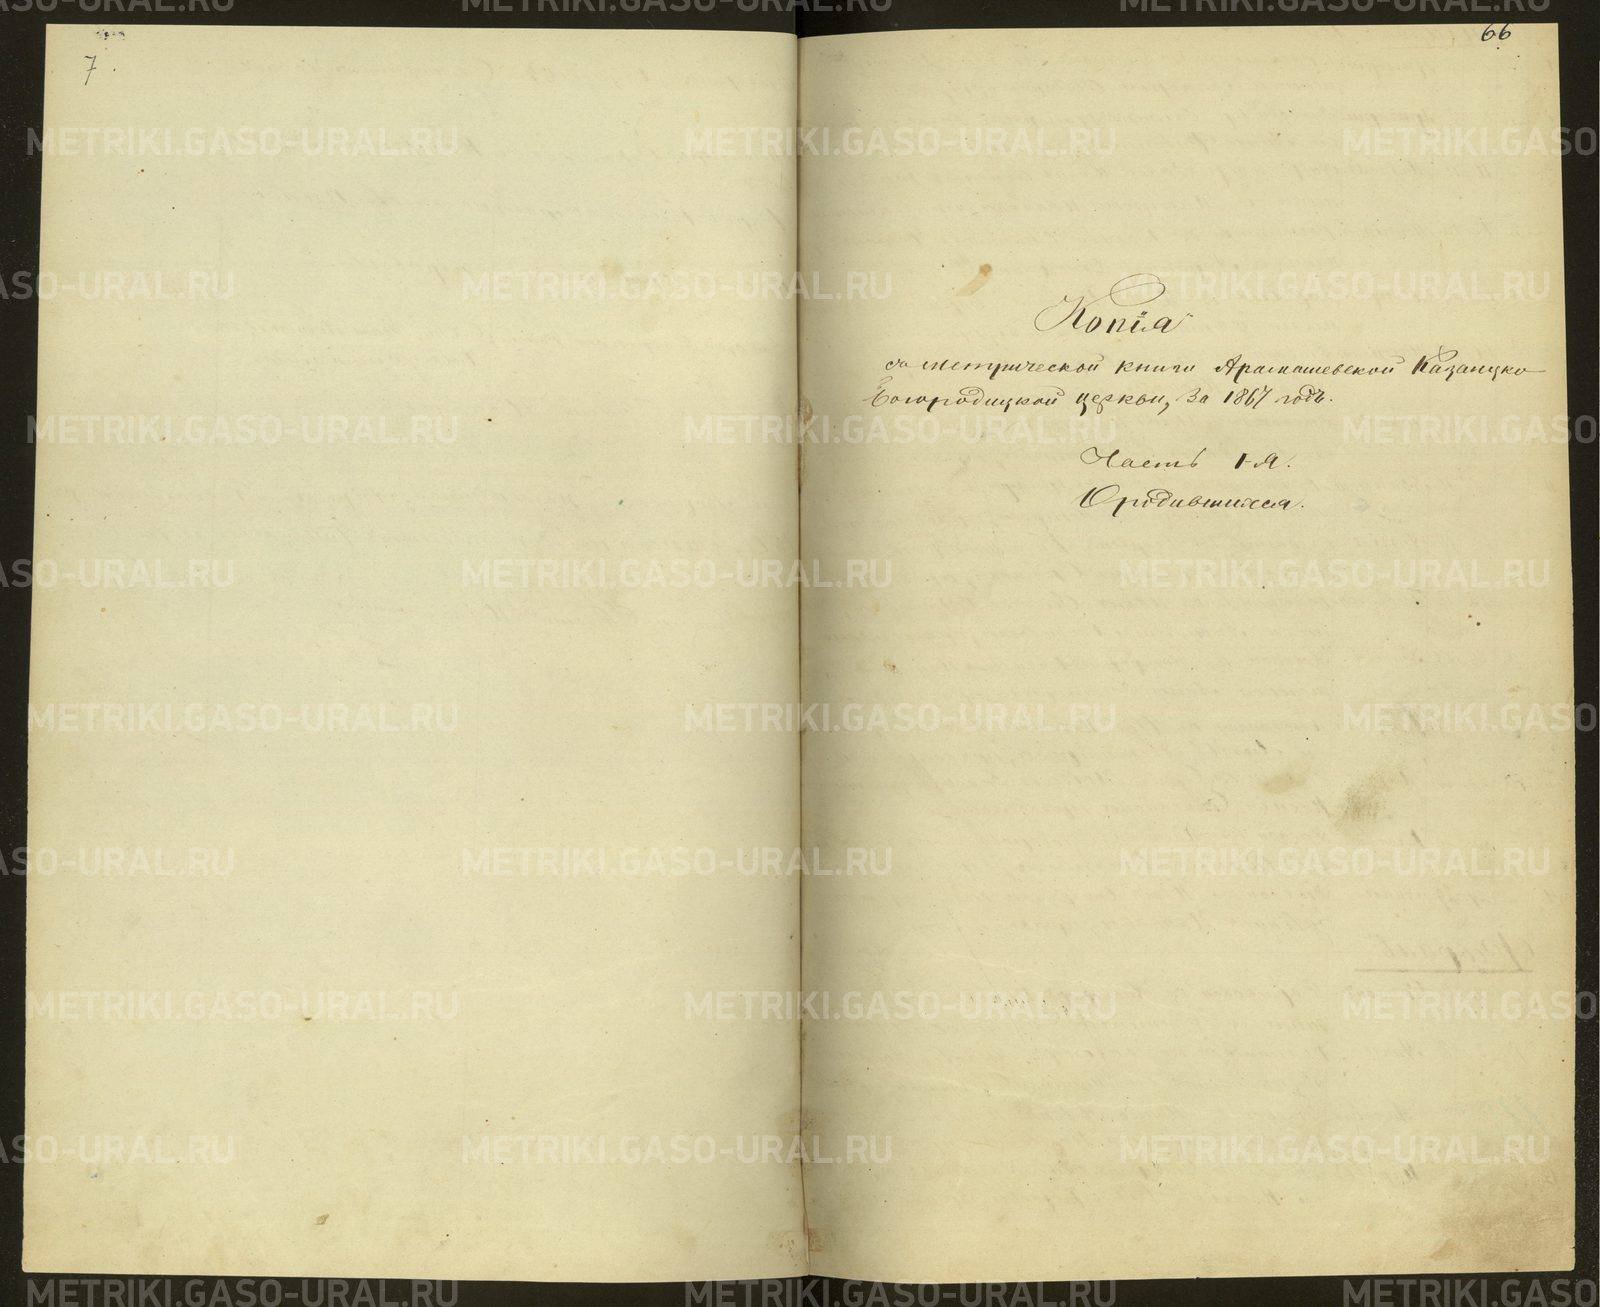 7.
66
Копія
съ метрической книги Арамашевской Казанско-
Богородицкой церкви, за 1867 годъ.
Часть I-я.
О родившихся.
METRIKI.GASO-URAL.RU